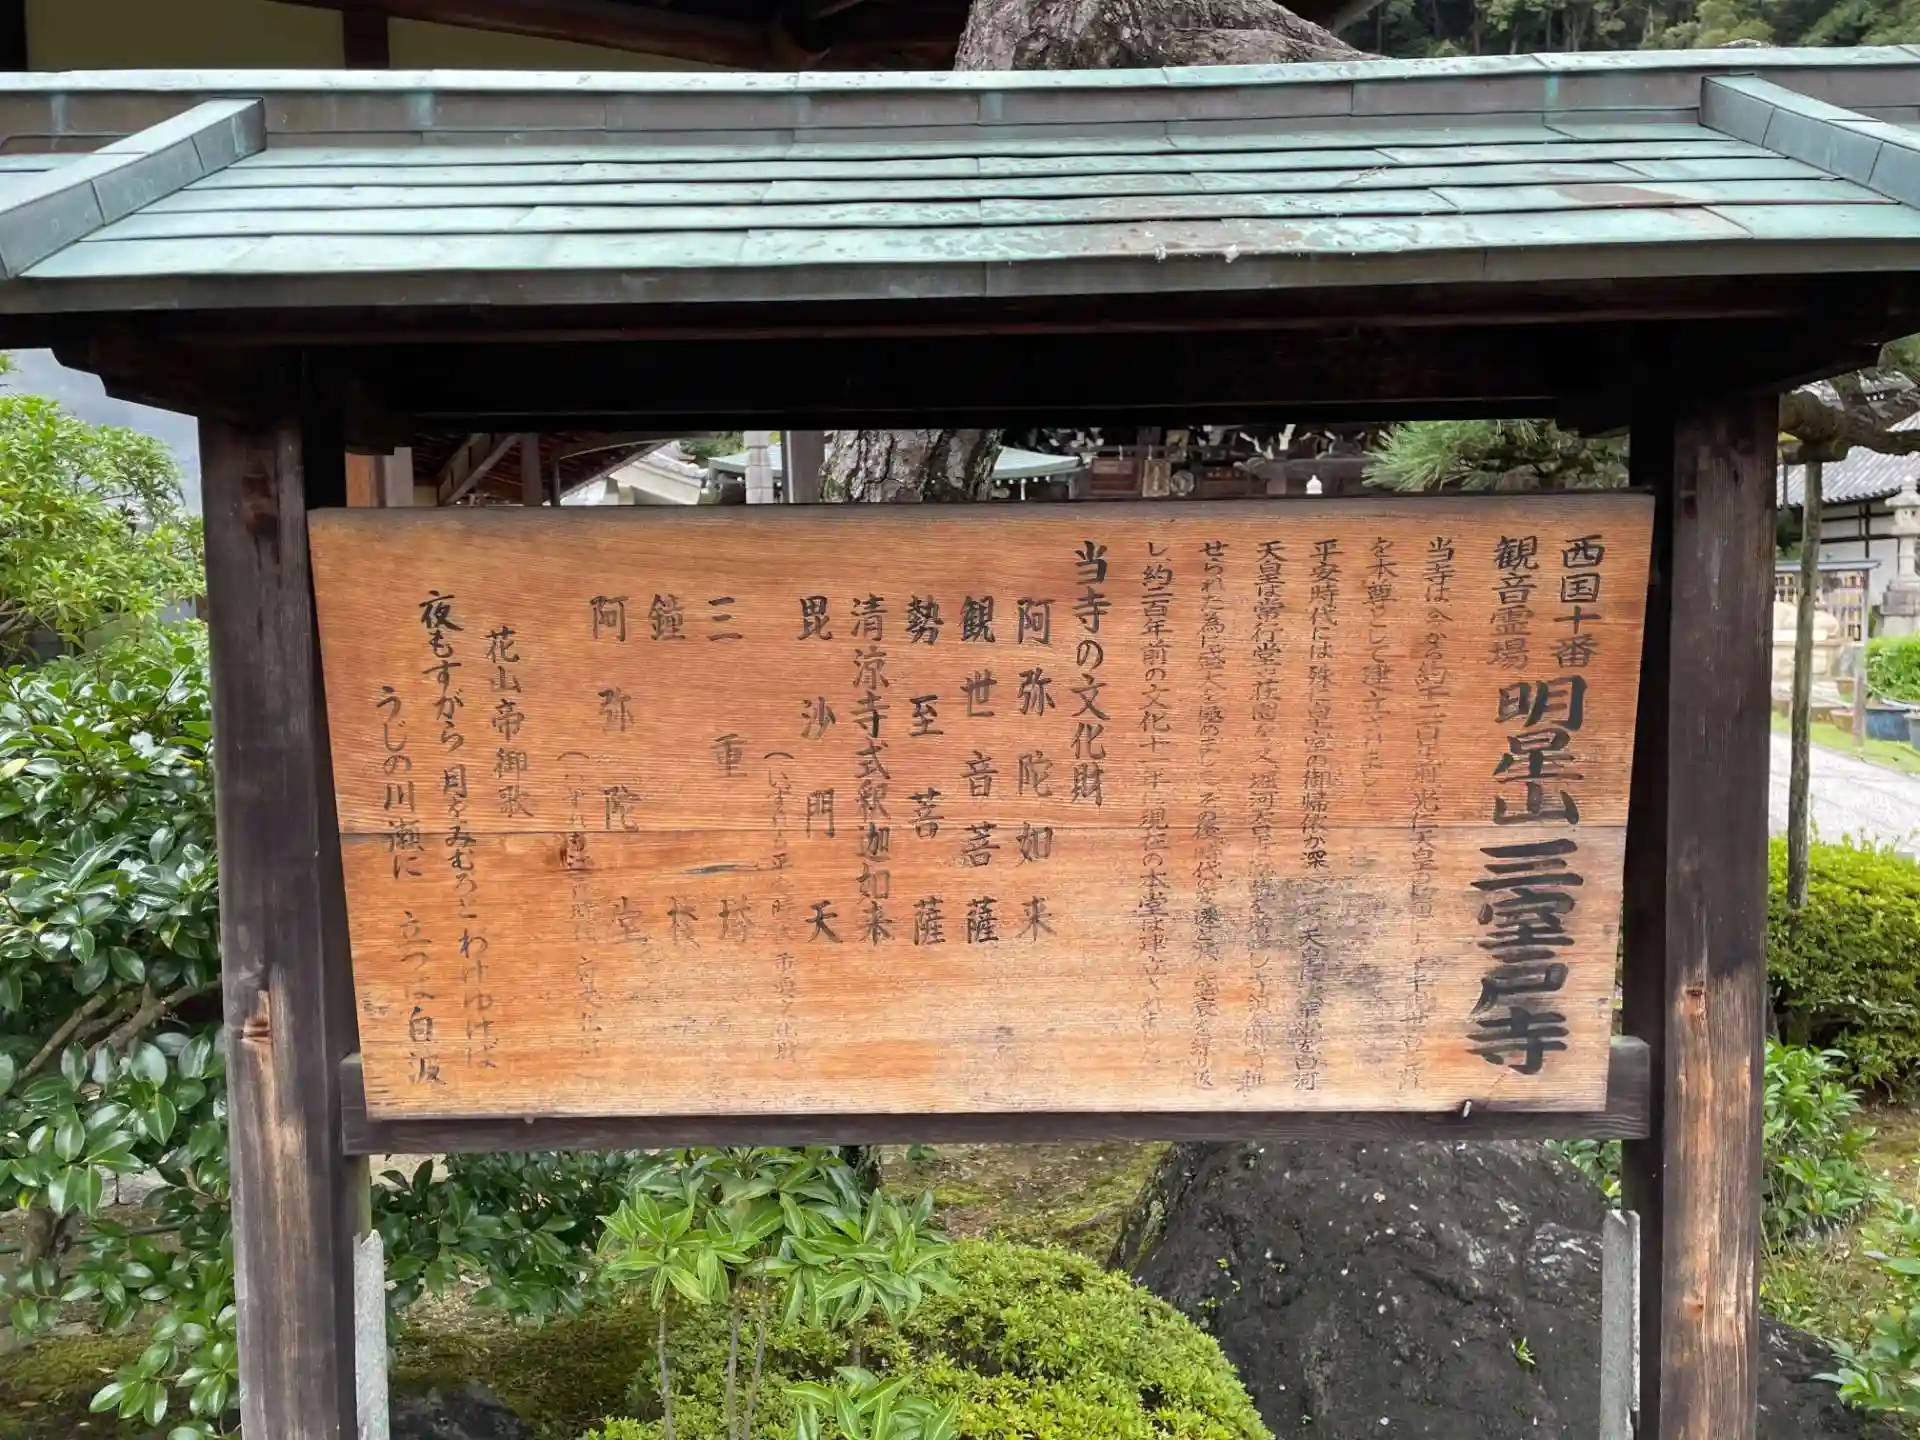 西国十番
観音霊場 明星山三室戸寺
当寺は今から約千二百年前光仁天皇
を本尊として建立されました
平安時代には殊に皇室の御帰依が深く 天皇は 白河
天皇は常行堂と荘園を又堀河天皇は
せられた為に盛大を極めました その後時代の
し、約二百年前の文化十一年に現在の本堂は建立されました
当寺の文化財
阿弥陀如来
観世音菩薩
勢至菩薩
清涼寺式釈迦如来
毘沙門天
(いずれも平安時代 重要文化財
三重塔
鐘楼
阿弥陀堂
(いずれも 時代 府文化財
花山帝御歌
夜もすがら月をみむろとわけゆけば
うじの川瀬に 立つは白波